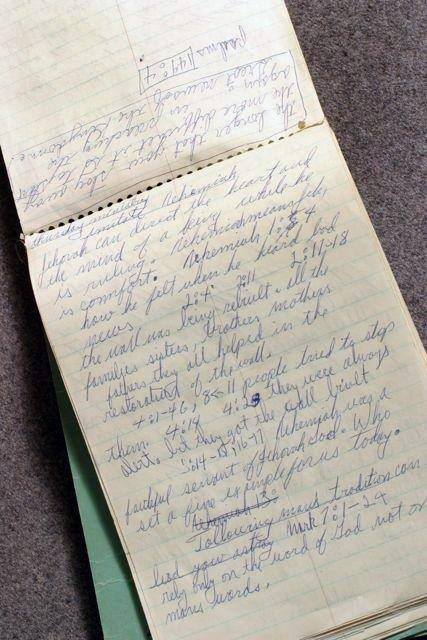 psalms 144:4
The longer that you stay away
the more difficult it
again in preaching the Kingdome
great news
Thursday
Imitate Nehemiah
Jehovah can direct the heart and
the mind of a king while he
is ruling. Nehemiah means Jah
is comfort. Nehemiah 1:3,4
how he felt when he heard bad
news 2:4 2:11 2:11-18
the wall was being rebuilt. All the
families sisters, brothers mothers
fathers they all helped in the
restoration of the wall.
4:1-46, 8>11 people tried to stop
them. 4:18 4:23 they were always
alert. but they got the wall built
5:14-18, 16-17 Nehemiah was a
faithful servant of Jehovah God. Who
set a fine example for us today.
Following mans tradition can
lead you astray Mrk 7:1-24
rely only on the word of God not on
mans words.